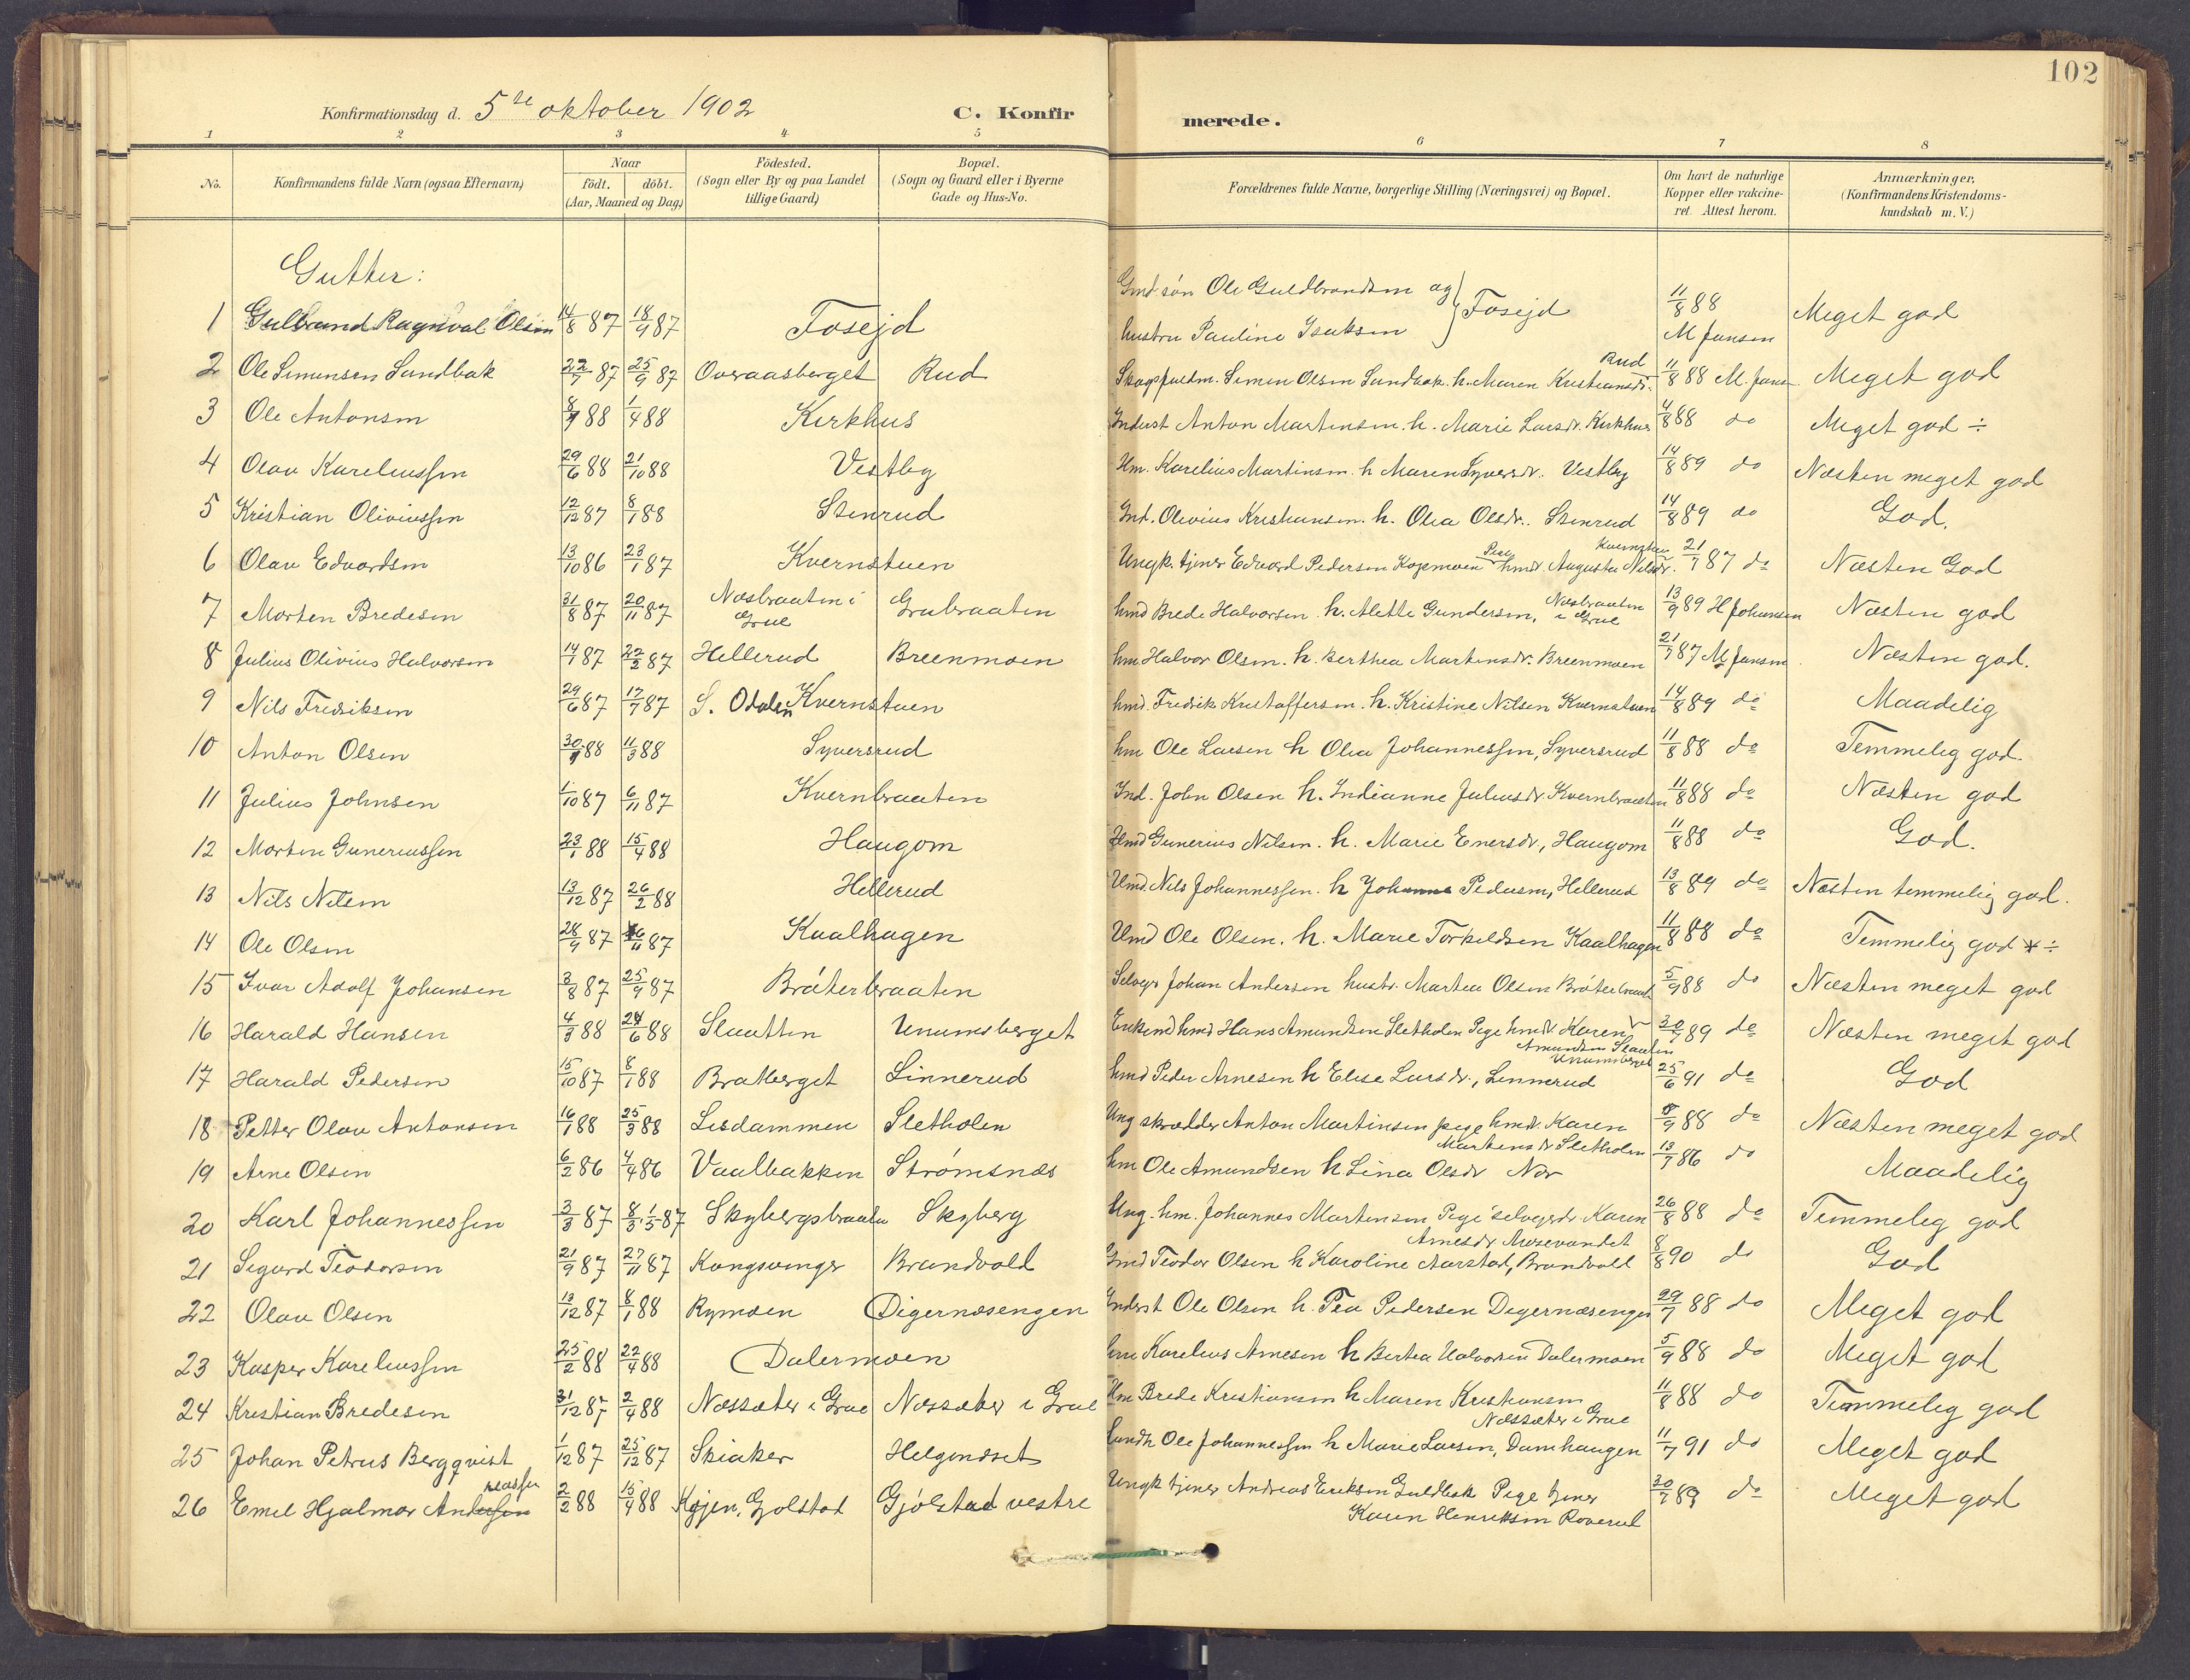 102
Konfirmationsdag d. 5te oktober 1902 C. Konfirmerede.
1 2 3 4 5 6 7 8
No. Konfirmandens fulde Navn (ogsaa Efternavn) Naar födt. döbt. (Aar, Maaned og Dag) Födested. (Sogn eller By og paa Landet tillige Gaard) Bopæl. (Sogn og Gaard eller i Byerne Gade og Hus-No. Forældrenes fulde Navne, borgerlige Stilling (Næringsvei) og Bopæl. Om havt de naturlige Kopper eller vakcineret. Attest herom. Anmærkninger, (Konfirmandens Kristendomskundskab m. V.)
Gutter:
1 Gulbrand Ragnval Olsen 14/8 87 18/9 87 Fosejd Gmd.søn Ole Guldbrandsen og hustru Pauline Isaksen } Fosejd 11/8 88 M Jansen Meget god
2 Ole Simensen Sandbak 22/7 87 25/9 87 Overaasberget Rud Simen Olsen Sandbak h. Maren Kristiansdr. Rud 11/8 88 M. Jansen Meget god
3 Ole Antonsen 88 1/4 88 Kirkhus Inderst Anton Martinsen h. Marie Larsdr. Kirkhus 4/8 88 do Meget god ÷
4 Olav Kareliussen 29/6 88 21/10 88 Vestby Hm. Karelius Martinsen h Maren Syversdr. Vestby 14/8 89 do Næsten meget god
5 Kristian Oliviussen 12/12 87 8/1 88 Stenrud Ind. Olivius Kristiansen h. Olea Olsdr. Stenrud 14/8 89 do God.
6 Olav Edvardsen 13/10 86 23/1 87 Kvernstuen Ungk. tjener Edvard Pedersen Kopmoen Pige hmdr. Augusta Nilsdr. Kvernstuen 21/7 87 do Næsten God
7 Morten Bredesen 31/8 87 20/11 87 Næsbraaten i Grue Grubraaten hmd Brede Halvorsen h. Alette Gundersen, Næsbraaten i Grue 13/9 89 H Johansen Næsten god
8 Julius Olivius Halvorsen 14/1 87 22/2 87 Hellerud Breenmoen hm Halvor Olsen. h. Berthea Martinsdr. Breenmoen 21/7 87 M Jansen Næsten god.
9 Nils Fredriksen 29/6 87 17/7 87 S. Odalen Kvernstuen hmd. Fredrik Kristoffersen h. Kristine Nilsen Kvernstuen 14/8 89 do Maadelig
10 Anton Olsen 30/1 88 11/3 88 Syversrud hm Ole Larsen h Olea Johannessen, Syversrud 11/8 88 do Temmelig god
11 Julius Johnsen 1/10 87 6/11 87 Kvernbraaten Ind. John Olsen h. Indianne Juliusdr. Kvernbraaten 11/8 88 do Næsten god
12 Morten Guneriussen 23/1 88 15/4 88 Haugom Hmd Gunerius Nilsen. h. Marie Enersdr., Haugom 11/8 88 do God.
13 Nils Nilsen 13/12 87 26/2 88 Hellerud Hmd. Nils Johannessen. h Johanne Pedersen, Hellerud 13/8 89 do Næsten temmelig god.
14 Ole Olsen 28/9 87 6/11 87 Kaalhagen Hmd Ole Olsen. h. Marie Torkeldsen Kaalhagen 11/8 88 do Temmelig god ÷
15 Ivar Adolf Johansen 3/8 87 25/9 87 Bráterbraaten Selveger Johan Andersen hustr. Martea Olsen Bráterbraaten 5/9 88 do Næsten meget god
16 Harald Hansen 4/3 88 24/6 88 Slaatten Unumsberget Enkemd hmd Hans Amundsen Sletholen Pige hmdr Karen Amundsen Slaatten Unumsberget 30/7 89 do Næsten meget god
17 Harald Pedersen 15/10 87 8/1 88 Bratberget Linnerud hmd Peder Arnesen h Elise Larsdr., Linnerud 25/6 91 do God
18 Petter Olav Antonsen 16/1 88 25/3 88 Lisdammen Sletholen Ung skrædder Anton Martinsen pige hmdr. Karen Martinsdr Sletholen 88 do Næsten meget god
19 Arne Olsen 6/2 86 4/4 86 Vaalbakken Strømsnæs hm Ole Amundsen h Lina Olsdr Nor 13/7 86 do Maadelig
20 Karl Johannessen 3/3 87 8/3 1/5 87 Skybergsbraaten Skyberg Ung. hm. Johannes Martinsen Pige selvegerdr Karen Arnesdr Mosevandet 26/8 88 do Temmelig god
21 Sigurd Teodorsen 21/9 87 27/11 87 Kongsvinger Brandvold Gmd Teodor Olsen h Karoline Aarstad, Brandvold 8/8 90 do God
22 Olav Olsen 13/12 87 8/1 88 Rymoen Digernæsengen Inderst Ole Olsen h. Tea Pedersen Digernæsengen 29/7 88 do Meget god
23 Kasper Kareliussen 25/2 88 22/4 88 Dalermoen hm Karelius Arnesen h Bertea Halvorsen Dalermoen 5/9 88 do Meget god
24 Kristian Bredesen 31/12 87 2/4 88 Næssæter i Grue Næssæter i Grue Hm Brede Kristiansen h Maren Kristiansen Næssæter i Grue 11/8 88 do Temmelig god
25 Johan Petrus Bergqvist 1/12 87 25/12 87 Skiaker Helgenset Landh Ole Johannessen h Marie Larsen, Damhaugen 11/7 91 do Meget god
26 Emil Hjalmar Andreassen 2/2 88 15/4 88 Gjølstad Gjølstad vestre Ungk tjener Andreas Eriksen Guldbak Pige tjener Karen Henriksen Roverud 30/7 89 do Meget god